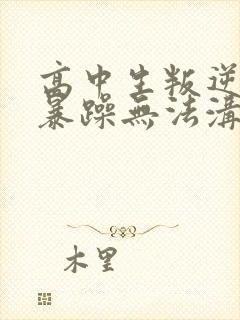 高中生叛逆
暴躁無法溝
木里